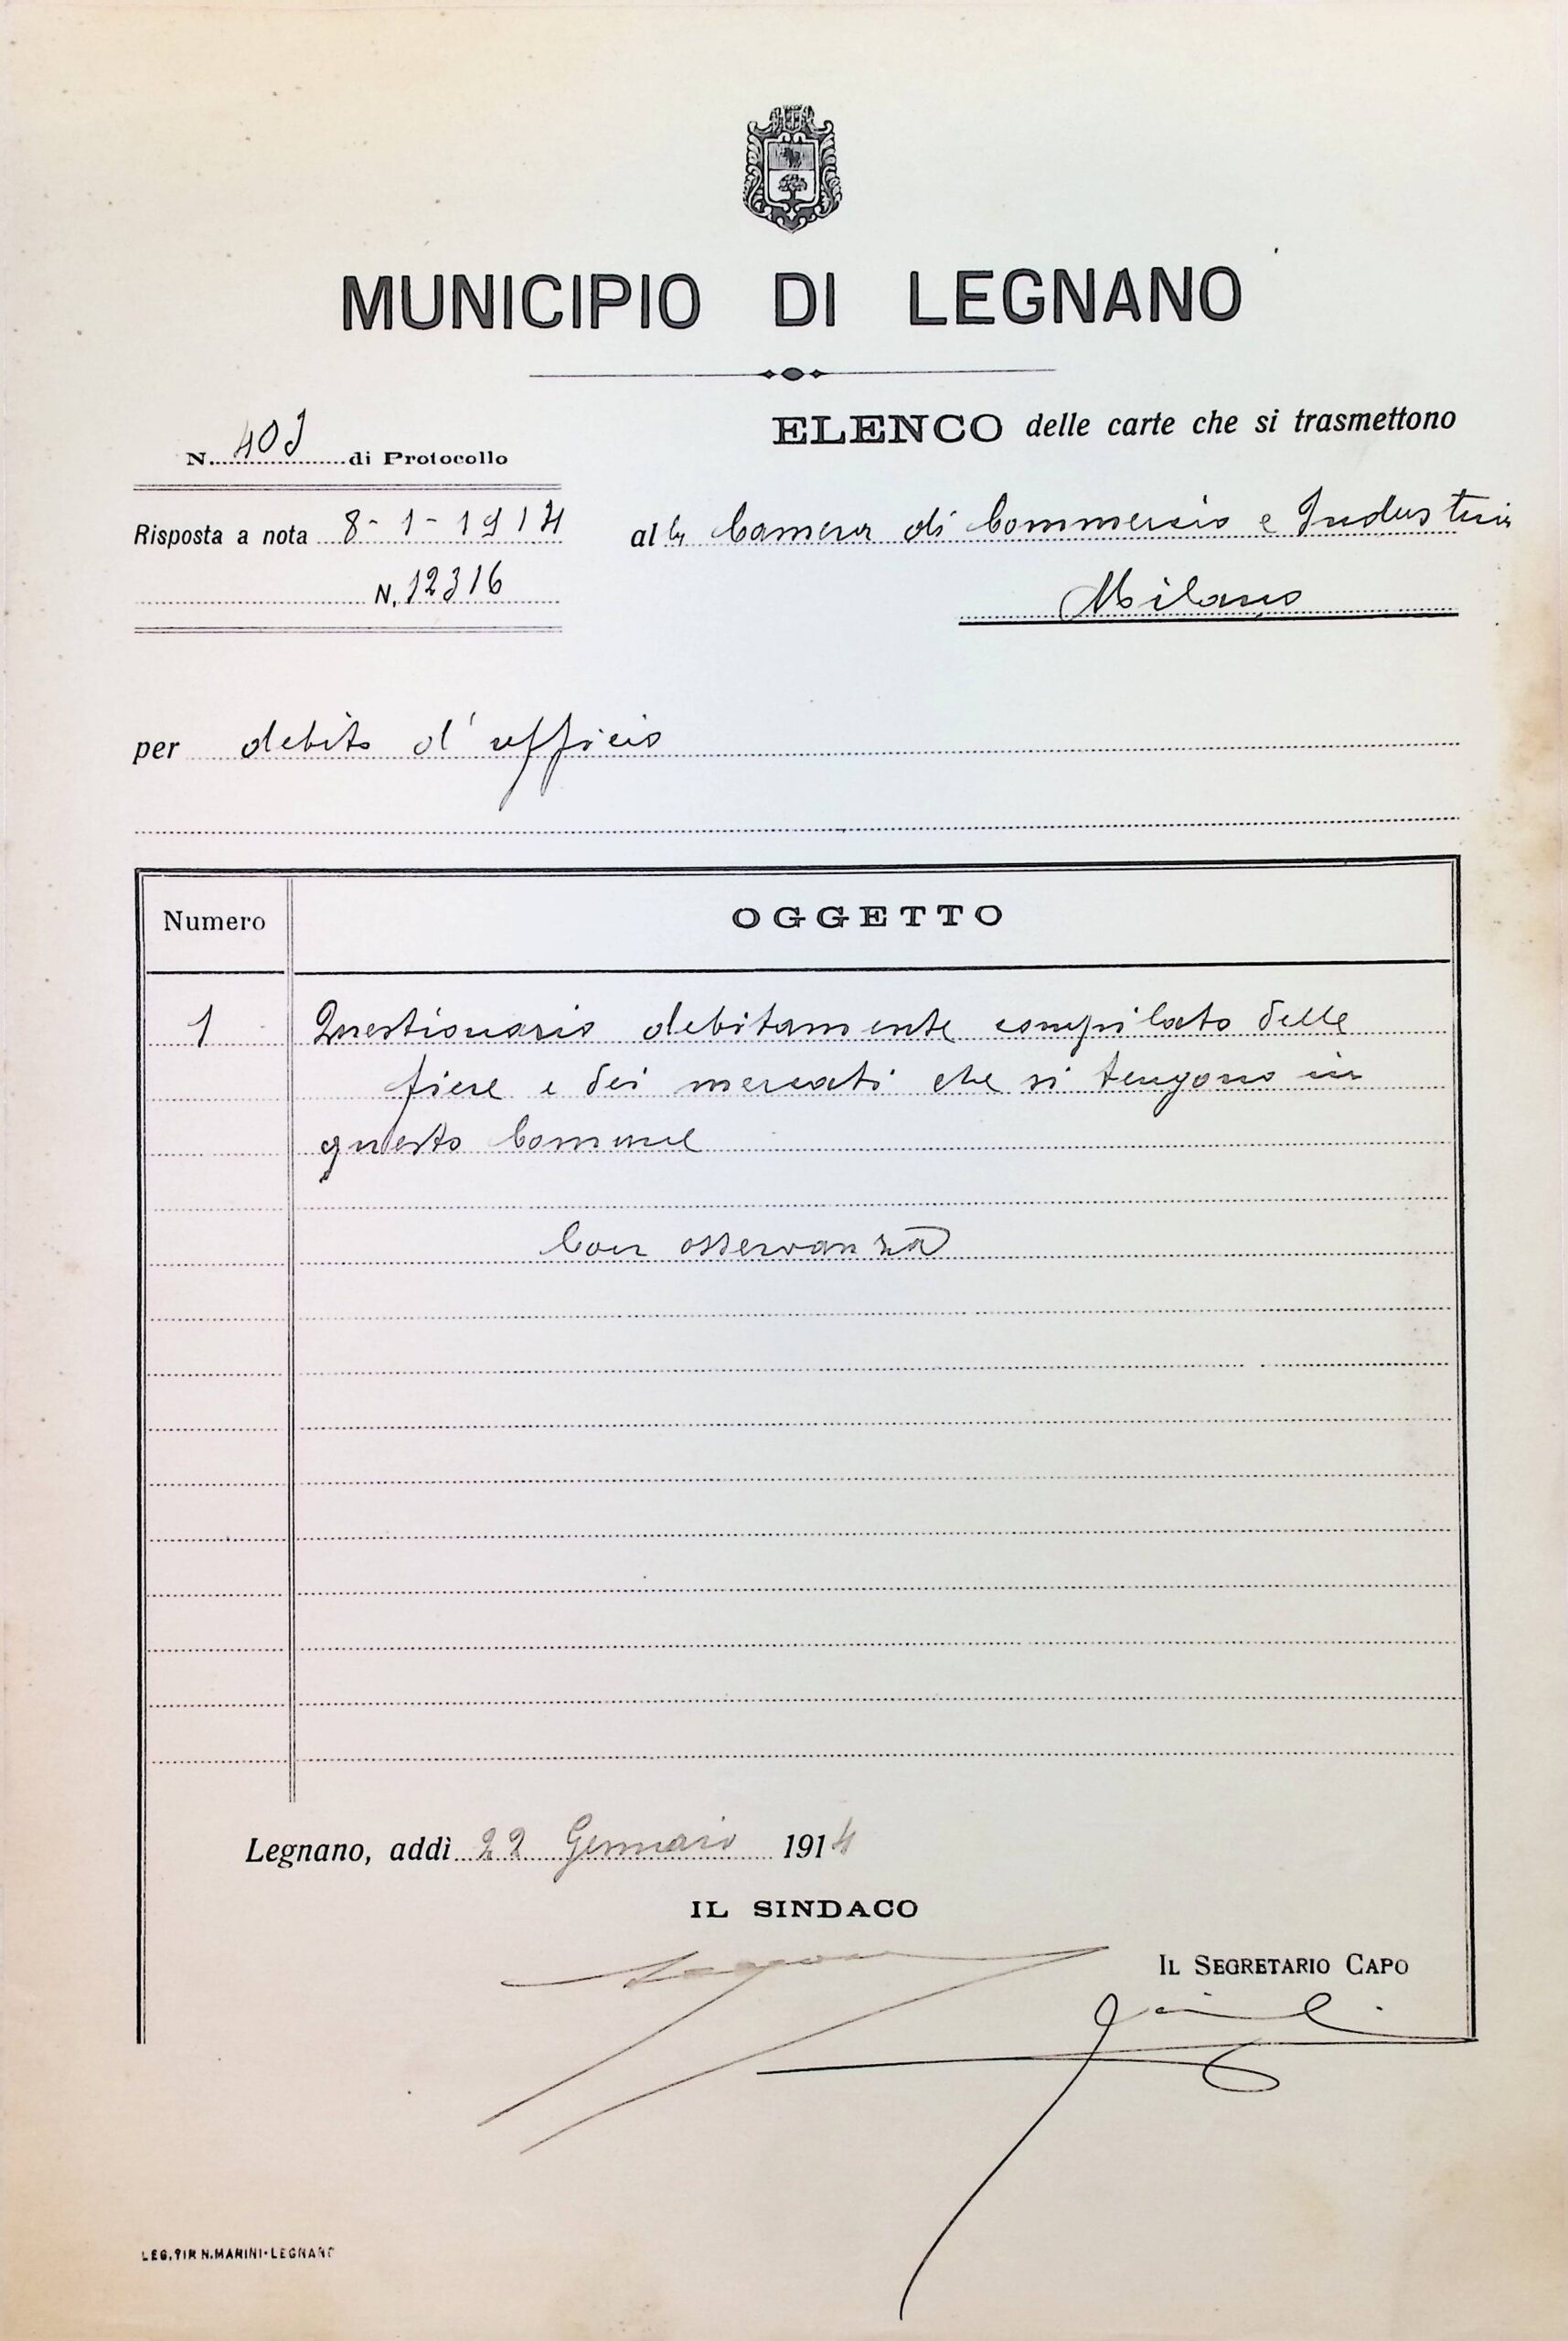 MUNICIPIO DI LEGNANO
N. 403 di Protocollo
ELENCO delle carte che si trasmettono
Risposta a nota 8-1-1914
alla Camera di Commercio e Industria
N. 12316
Milano
per debito d'ufficio
Numero OGGETTO
1 Questionario debitamente compilato delle
fiere e dei mercati che si tengono in
questo Comune
Con osservanza
Legnano, addì 22 Gennaio 1914
IL SINDACO
IL SEGRETARIO CAPO
LEG. TIP. N. MARINI-LEGNANO